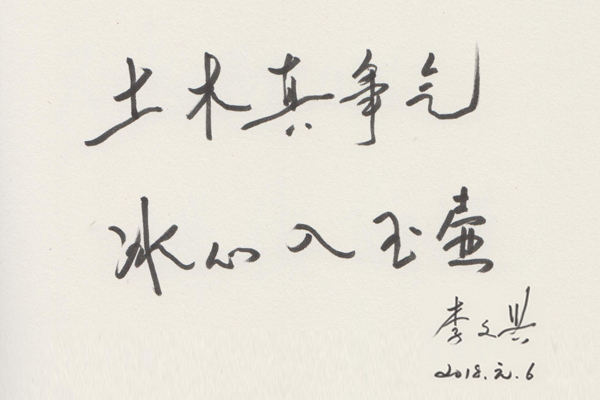 土木真争气
冰心入玉壶
李文兴
2018.元.6